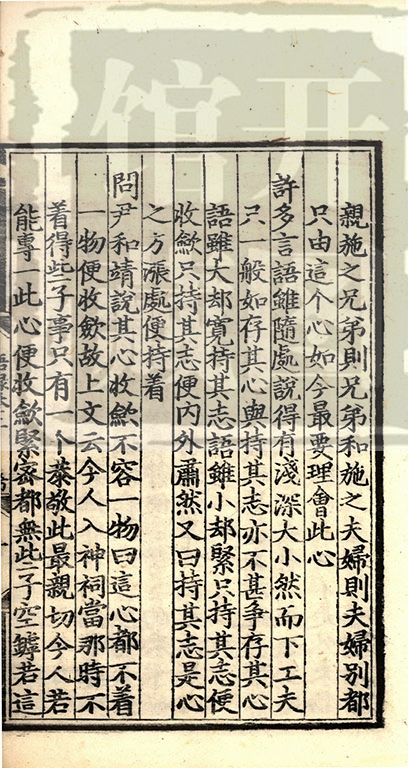 親施之兄弟則兄弟和施之夫婦則夫婦別都
只由這个心如今最要理會此心
許多言語雖隨處說得有淺深大小然而下工夫
只一般如存其心與持其志亦不甚爭存其心
語雖大却寬持其志語雖小却緊只持其志便
收斂只持其志便內外肅然又曰持其志是心
之方漲處便持着
問尹和靖說其心收斂不容一物曰這心都不着
一物便收斂故上文云今人入神祠當那時不
着得些子事只有一个恭敬此最親切今人若
能專一此心便收歛緊密都無些子空罅若這
開
館